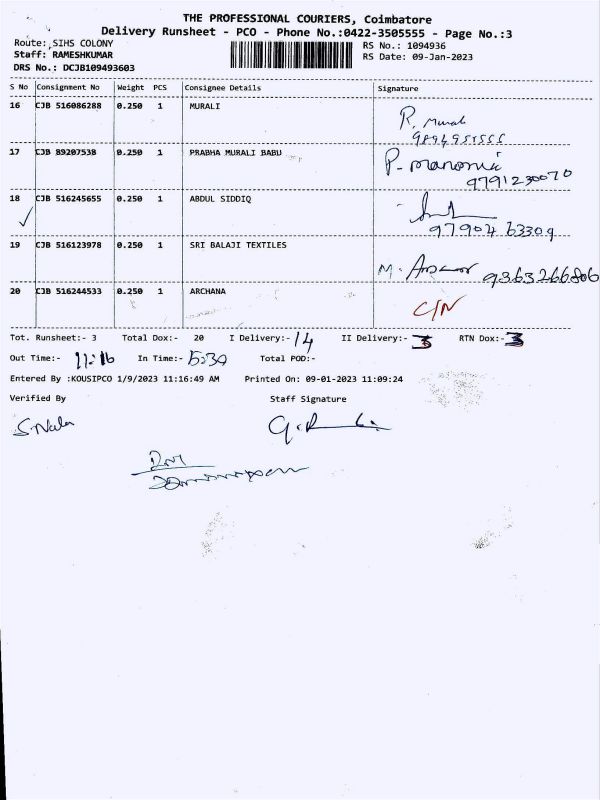 THE PROFESSIONAL COURIERS, Coimbatore
Delivery Runsheet - PCO - Phone No.:0422-3505555 - Page No.:3
Route: SIHS COLONY
RS No.: 1094936
Staff: RAMESHKUMAR
RS Date: 09-Jan-2023
DRS No.: DCJB109493603
S No Consignment No Weight PCS Consignee Details Signature
16 CJB 516086288 0.250 1 MURALI R. Murali
17 CJB 89207538 0.250 1 PRABHA MURALI BABU P.
9791230070
18 CJB 516245655 0.250 1 ABDUL SIDDIQ
97904 63309
19 CJB 516123978 0.250 1 SRI BALAJI TEXTILES
M. 9363266806
20 CJB 516244533 0.250 1 ARCHANA C/N
Tot. Runsheet:- 3 Total Dox:- 20 I Delivery:- 14 II Delivery:- 3 RTN Dox:- 3
Out Time:- 11:16 In Time:- 5:30 Total POD:-
Entered By :KOUSIPCO 1/9/2023 11:16:49 AM Printed On: 09-01-2023 11:09:24
Verified By Staff Signature